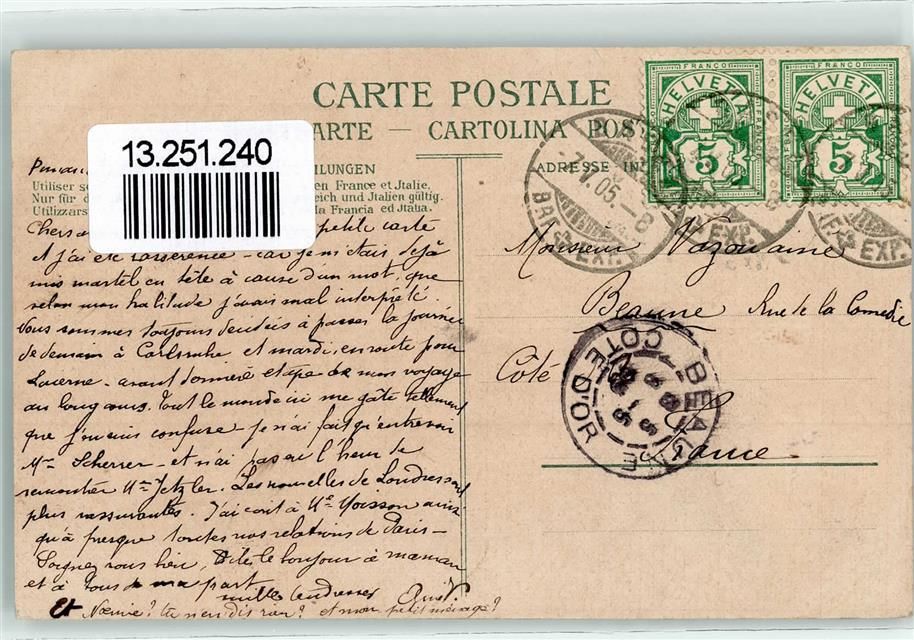 CARTE POSTALE
ARTE — CARTOLINA POST
ILUNGEN
ADRESSE
13.251.240
Utiliser se en France et Italie.
Nur für d eich und Italien gültig.
Utilizzars la Francia ed Italia.
FRANCO FRANCO
HELVETIA HELVETIA
5 5
05. – 8
EXP. EXP. EXP.
petite carte
m'a rassérénée – car je m'étais déjà
mis martel en tête à cause d'un mot, que
selon mon habitude j'avais mal interprété.
Vous sommes toujours décidées à passer la journée
de demain à Carlsruhe et mardi, en route pour
Lucerne – avant dernière étape de mon voyage
au long cours. Tout le monde ici me gâte tellement
que j'en suis confuse je n'ai fait qu'entrevoir
Mme Scherrer – et n'ai pas eu l'heur de
rencontrer Mme Jetzler. Les nouvelles de Londres sont
plus rassurantes. J'ai écrit à Moisson ainsi
qu'à presque toutes nos relations de Paris –
Soignez vous bien, dites le bonjour à maman
et à tous de ma part
mille tendresses
Et Noémie? tu n'en dis rien? et mon petit ménage?
Monsieur
Beaune Rue de la Comédie
Côté
France
BEAUNE
COTE D'OR